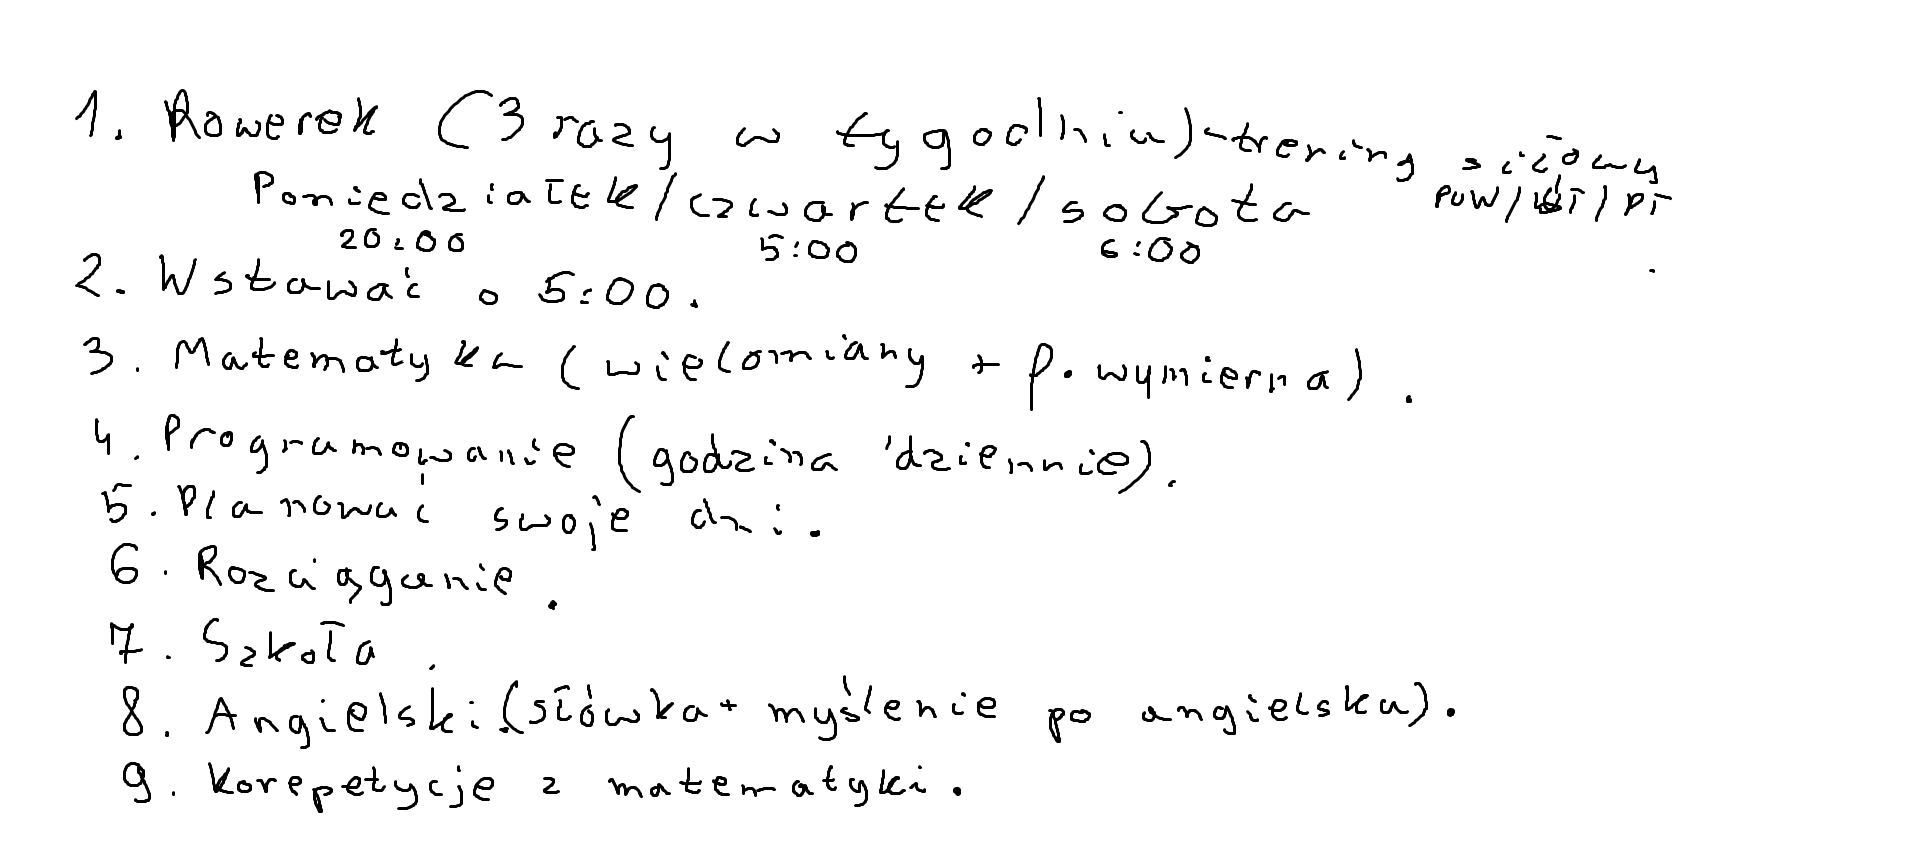 1. Rowerek (3 razy w tygodniu) - trening siłowy
Poniedziałek / czwartek / sobota PON / WT / PT
20:00 5:00 6:00
2. Wstawać o 5:00.
3. Matematyka (wielomiany + f. wymierna).
4. Programowanie (godzina dziennie).
5. Planować swoje dni.
6. Rozciąganie.
7. Szkoła.
8. Angielski (słówka + myślenie po angielsku).
9. Korepetycje z matematyki.